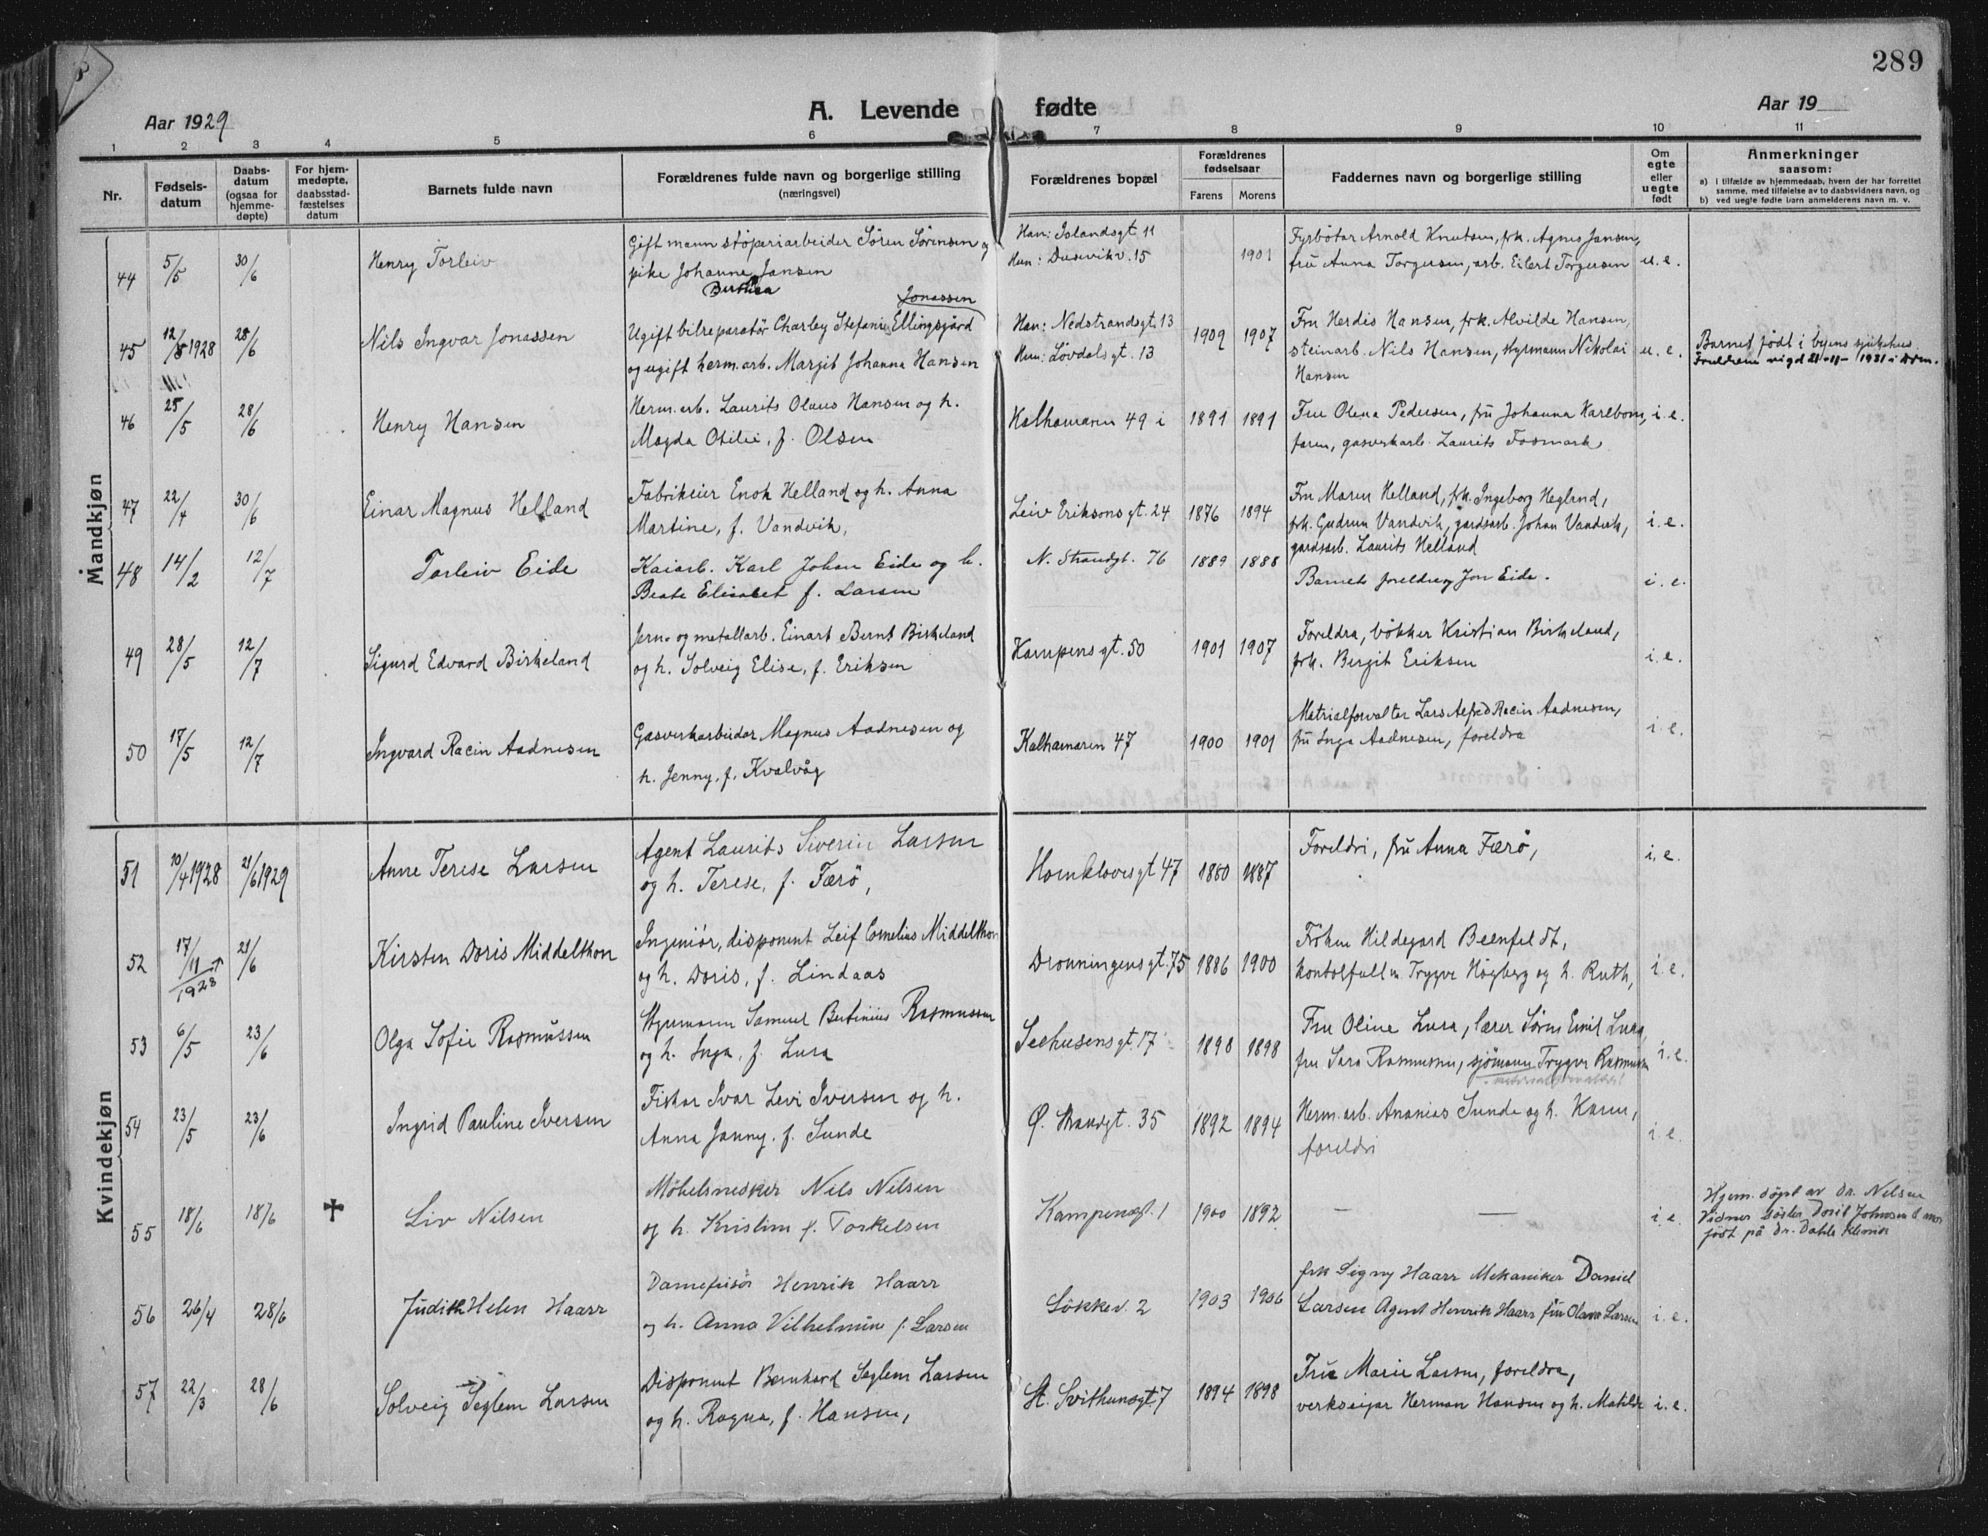 289
Aar 1929
A. Levende fødte
Aar 19
1 2 3 4 5 6 7 8 9 10 11
Nr.
Fødsels-
datum
Daabs-
datum
(ogsaa for
hjemme-
døpte)
For hjem-
medøpte,
daabsstad-
fæstelses
datum
Barnets fulde navn
Forældrenes fulde navn og borgerlige stilling
(næringsvei)
Forældrenes bopæl
Forældrenes
fødselsaar
Farens Morens
Faddernes navn og borgerlige stilling
Om
egte
eller
uegte
født
Anmerkninger
saasom:
a) i tilfælde av hjemmedaab, hvem der har forrettet
samme, med tilføielse av to daabsvidners navn, og
b) ved uegte fødte barn anmelderens navn m. v.
Mandkjøn
44 5/5 30/6 Henry Torleiv
Gift mann støperiarbeider Søren Sørensen og
pike Johanne Jansen
Berthea
Han: Islandsgt. 11
Hun: Dusevikv. 15
1901
Fyrbøter Arnold Knutsen, frk. Agnes Jansen,
fru Anna Torgersen, arb. Eilert Torgersen
u. e.
45 12/8 1928 28/6 Nils Ingvar Jonassen
Jonassen
Ugift bilreparatør Charley Stefanius Ellingsgård
og ugift herm.arb. Margit Johanna Hansen
Han: Nedstrandsgt. 13
Hun: Løvdalsgt. 13
1909 1907
Fru Herdis Hansen, frk. Alvilde Hansen,
steinarb. Nils Hansen, styrmann Nikolai
Hansen
u. e.
Barnet født i byens sjukehus.
Foreldrene vigd 21-11-1931 i Dom.
46 25/5 28/6 Henry Hansen
Herm.arb. Laurits Olaus Hansen og h.
Magda Otilie, f. Olsen
Kalhamaren 49 i
1891 1891
Fru Olena Pedersen, fru Johanna Karlbom,
faren, gasverkarb. Laurits Fosmark
i. e.
47 22/4 30/6 Einar Magnus Helland
Fabrikeier Enok Helland og h. Anna
Martine, f. Vandvik,
Leiv Eriksonsgt. 24
1876 1894
Fru Maren Helland, frk. Ingeborg Hegland,
frk. Gudrun Vandvik, gardsarb. Johan Vandvik,
gardsarb. Laurits Helland
i. e.
48 14/2 12/7 Torleiv Eide
Kaiarb. Karl Johan Eide og h.
Beate Elisabet f. Larsen
N. Strandgt. 76
1889 1888
Barnets foreldre og Jon Eide.
i. e.
49 28/5 12/7 Sigurd Edvard Birkeland
Jern- og metallarb. Einart Bernt Birkeland
og h. Solveig Elise, f. Eriksen
Kampensgt. 50
1901 1907
Foreldra, bøkker Kristian Birkeland,
frk. Bergit Eriksen
i. e.
50 17/5 12/7 Ingvard Racin Aadnesen
Gasverkarbeider Magnus Aadnesen og
h. Jenny, f. Kvalvåg
Kalhamaren 47
1900 1901
Matrialforvalter Lars Alfred Racin Aadnesen,
fru Inga Aadnesen, foreldra
i. e.
Kvindekjøn
51 10/4 1928 21/6 1929 Anne Terese Larsen
Agent Laurits Siverin Larsen
og h. Terese, f. Færø,
Hornklovesgt 47
1880 1887
Foreldri, fru Anna Færø,
i. e.
52 17/11 1928 21/6 Kirsten Doris Middelthon
Ingeniør, disponent Leif Cornelius Middelthon
og h. Doris, f. Lindaas
Dronningensgt. 75
1886 1900
Frøken Hildegard Beenfeldt,
kontolfullm Trygve Høgberg og h. Ruth,
i. e.
53 6/5 23/6 Olga Sofie Rasmussen
Styrmann Samuel Bertinius Rasmussen
og h. Inga, f. Lura
Seehusensgt. 17
1898 1898
Fru Oline Lura, lærer Søren Emil Lura,
fru Sara Rasmussen, sjømann Trygve Rasmussen
i. e.
54 23/5 23/6 Ingrid Pauline Iversen
Fisker Ivar Levi Iversen og h.
Anna Janny, f. Sunde
Ø. Strandgt. 35
1892 1894
Herm.arb. Ananias Sunde og h. Karen,
foreldri
i. e.
55 18/6 18/6 ✝ Liv Nilsen
Møbelsnedker Nils Nilsen
og h. Kristine f. Torkelsen
Kampensgt. 1
1900 1892
— —
i. e.
Hjem. døpt av Dr. Nilsen
Vidner søster Dorit Johnsen & mor
født på Dr. Dahls klinik
56 26/4 28/6 Judith Helen Haarr
Damefrisør Henrik Haarr
og h. Anna Vilhelmine f. Larsen
Løkkev. 2
1903 1906
frk Signy Haarr Mekaniker Daniel
Larsen Agent Henrik Haarr fru Olava Larsen
i. e.
57 22/3 28/6 Solveig Seglem Larsen
Disponent Bernhard Seglem Larsen
og h. Ragna, f. Hansen,
St. Svithunsgt. 7
1894 1898
Fru Marie Larsen, foreldra,
verkseigar Herman Hansen og h. Matilde
i. e.